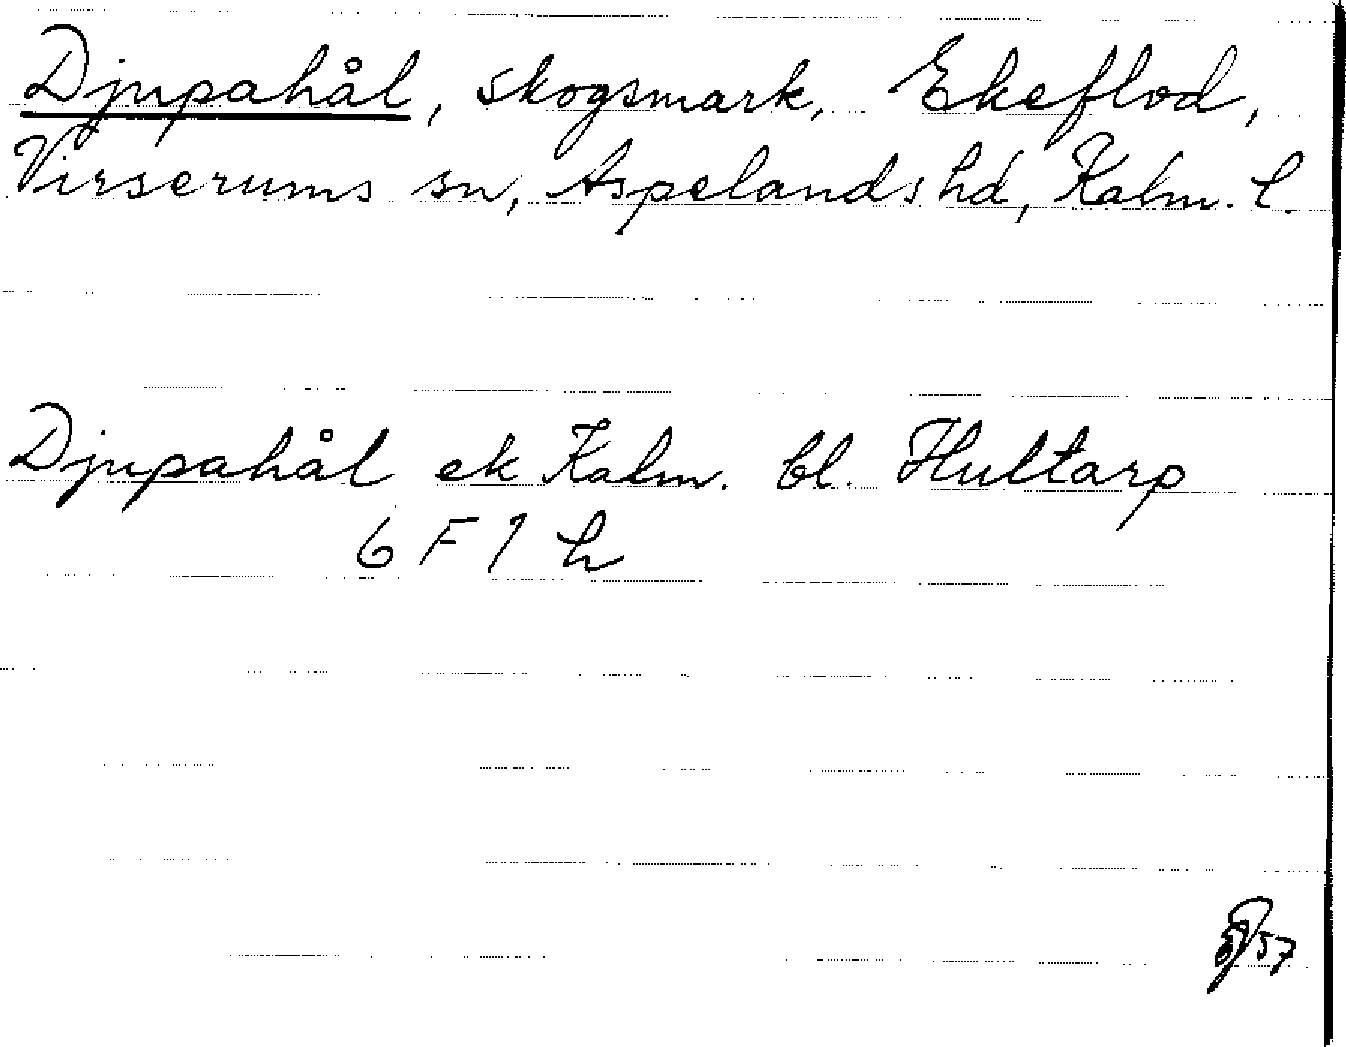 Djupahål, skogsmark, Ekeflod,
Virserums sn, Aspelands hd, Kalm. l.
Djupahål ek Kalm. bl. Hultarp
6 F 1 h
57